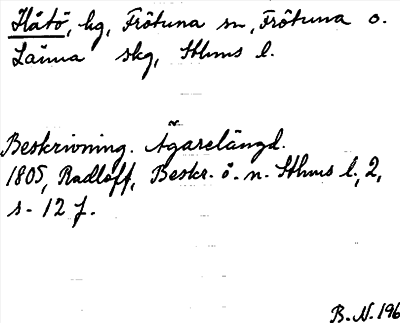 Håtö, hg, Frötuna sn, Frötuna o.
Länna skg, Sthms l.
Beskrivning. Ägarelängd.
1805, Radloff, Beskr. ö. n. Sthms l., 2,
s. 12 f.
B.N. 196